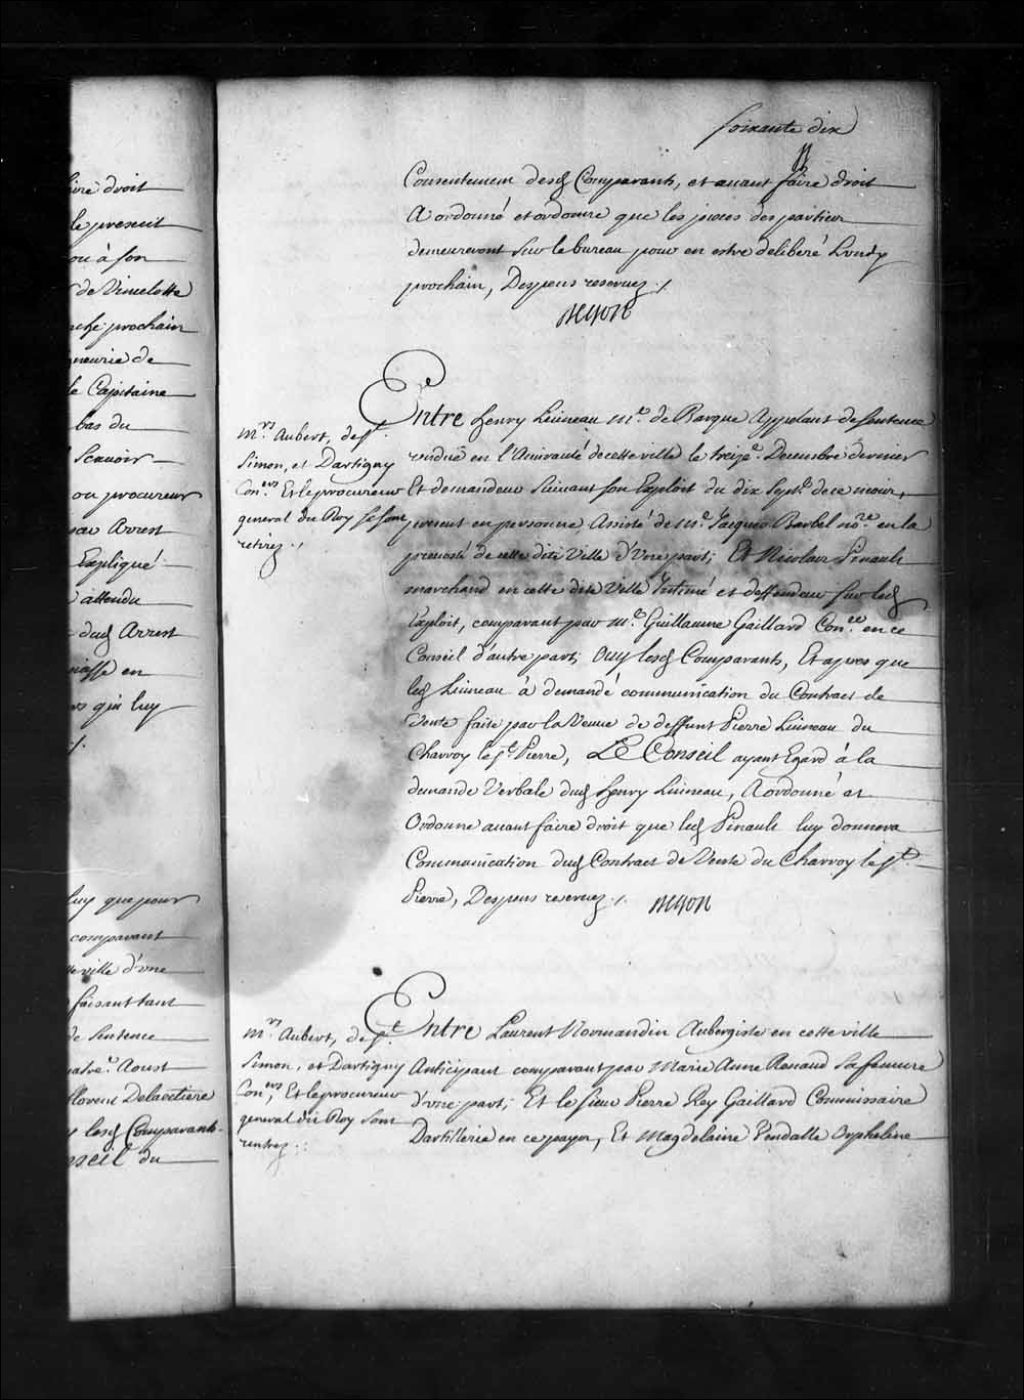 ire droit
le present
ou à son
de Vincelotte
prochain
neurie de
le Capitaine
bas du
Scauoir
ou procureur
Arrest
Expliqué
attendu
dud Arrest
en
qui luy
luy que pour
comparant
ville d'vne
faisant tant
de Sentence
Aoust
florent Delacetiere
lesd Comparants
seil du
soixante dix
Consentement desd Comparants, et auant faire droit
A ordonné et ordonne que les pieces des parties
demeureront sur le bureau pour en estre deliberé Lundy
prochain, Despens reseruez ./.
BEGON
Mrs. Aubert, de St.
Simon, et Dartigny
Coners. Et le procureur
general du Roy se sont
retirez ./
Entre henry Luineau Me. de Barque Appelant de sentence
rendüe en l'Amirauté de cette ville le treize. Decembre dernier
Et demandeur suiuant son Exploit du dix Sept. de ce mois,
present en personne Assisté de Me. Jacques Barbel nore. en la
preuosté de cette dite Ville d'Vne part; Et Nicolas Pinault
marchand en cette dite Ville Intimé et deffendeur sur led
Exploit, comparant par Me. Guillaume Gaillard Coner. en ce
Conseil d'autre part; Ouy lesd Comparants, Et apres que
led Luineau à demandé communication du Contract de
Vente faite par la Veuue de deffunt Pierre Luineau du
Charroy le St. Pierre, LE Conseil ayant Egard à la
demande Verbale dud henry Luineau, A ordonné et
Ordonne auant faire droit que led Pinault luy donnera
Communication dud Contract de Vente du Charroy le St.
Pierre, Despens reseruez ./. BEGON
Mrs. Aubert, de St.
Simon, et Dartigny
Coners, Et le procureur
general du Roy sont
rentrez ./.
Entre Laurent Normandin Aubergiste en cette ville
Anticipant comparant par Marie Anne Renaud Sa femme
d'vne part; Et le sieur Pierre Rey Gaillard Commissaire
Dartillerie en ce payes, Et Magdelaine Vendalle Orpheline